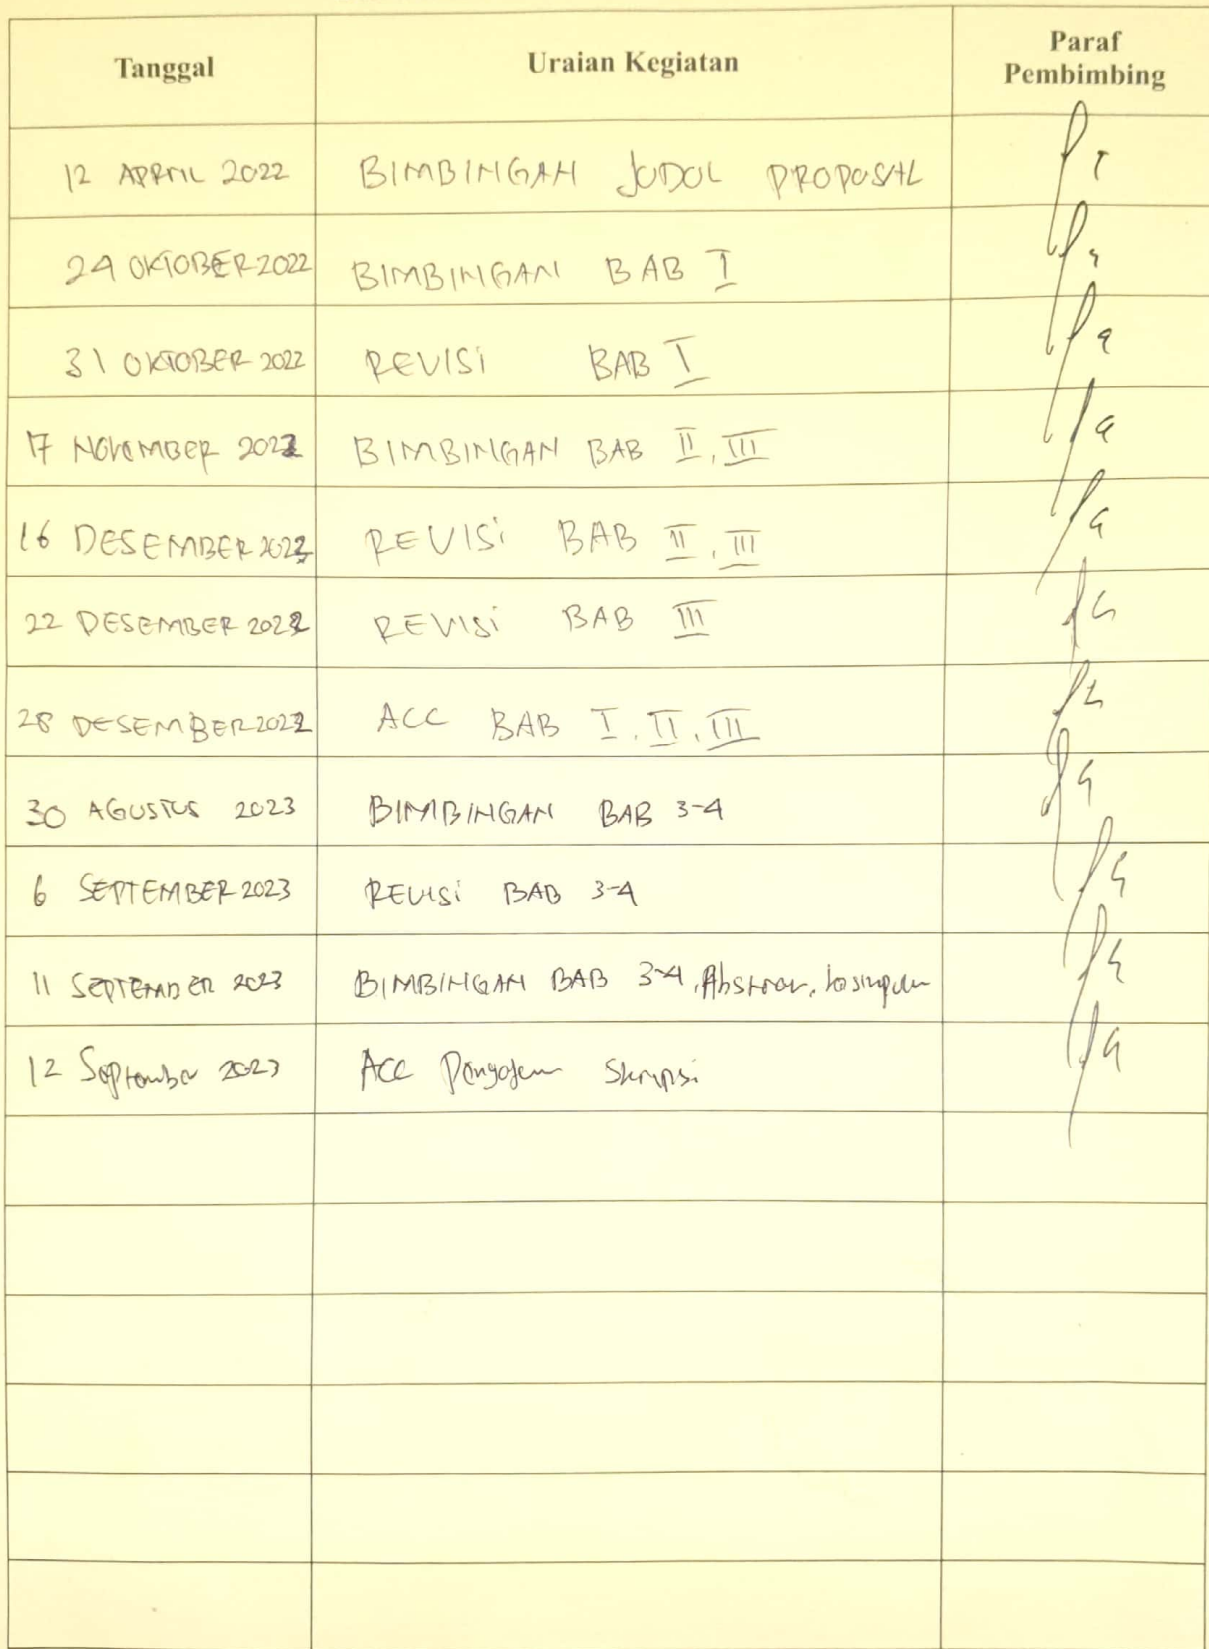 Tanggal Uraian Kegiatan Paraf Pembimbing
12 APRIL 2022 BIMBINGAN JUDUL PROPOSAL
24 OKTOBER 2022 BIMBINGAN BAB I
31 OKTOBER 2022 REVISI BAB I
17 NOVEMBER 2022 BIMBINGAN BAB II, III
16 DESEMBER 2022 REVISI BAB II, III
22 DESEMBER 2022 REVISI BAB III
28 DESEMBER 2022 ACC BAB I, II, III
30 AGUSTUS 2023 BIMBINGAN BAB 3-4
6 SEPTEMBER 2023 REVISI BAB 3-4
11 SEPTEMBER 2023 BIMBINGAN BAB 3-4, Abstrak,
12 September 2023 ACC Skripsi